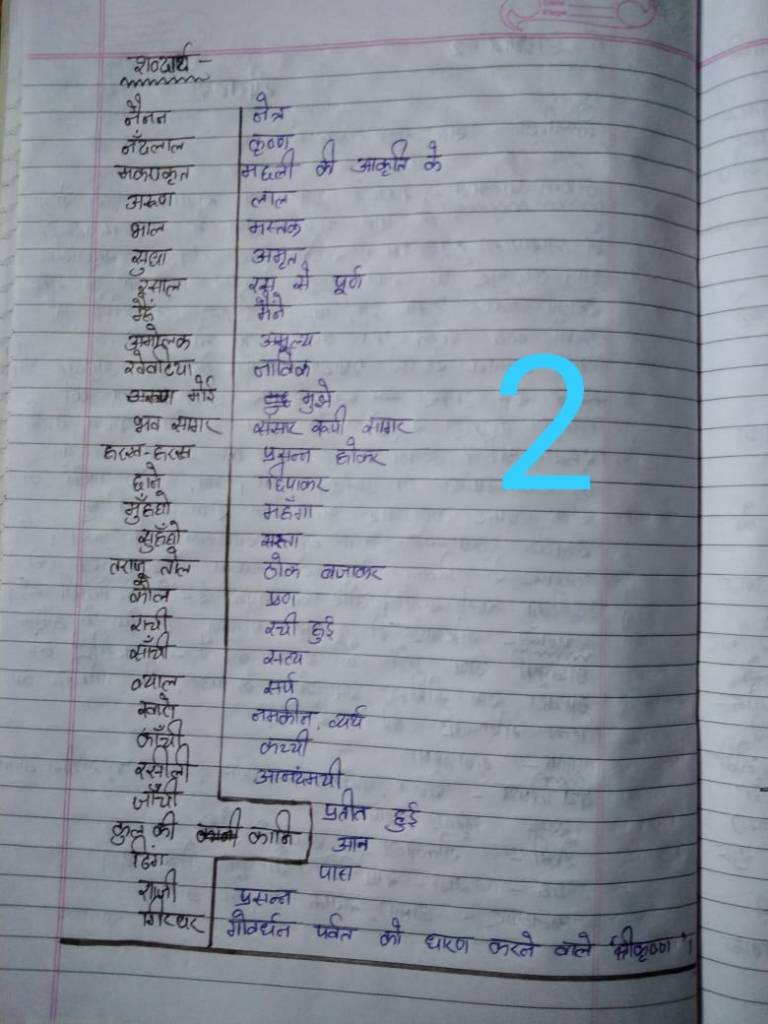 शब्दार्थ -
नैनन नेत्र
नँदलाल कृष्ण
मकराकृत मछली की आकृति के
अरुण लाल
भाल मस्तक
सुधा अमृत
रसाल रस से पूर्ण
मैंने
अमोलक अमूल्य
खेवटिया नाविक
मोई मुझे
भव सागर संसार रूपी सागर
हरख-हरख प्रसन्न होकर
छाने छिपाकर
मुँहघो महँगा
सुहँघो सस्ता
तराजू तोल ठोक बजाकर
कौल प्रण
राची रची हुई
साँची सत्य
व्याल सर्प
खारो नमकीन, व्यर्थ
काँची कच्ची
रसीली आनंदमयी
जाँची प्रतीत हुई
कुल की कानि आन
ढिंग पास
राजी प्रसन्न
गिरधर गोवर्धन पर्वत को धारण करने वाले श्रीकृष्ण ।
2